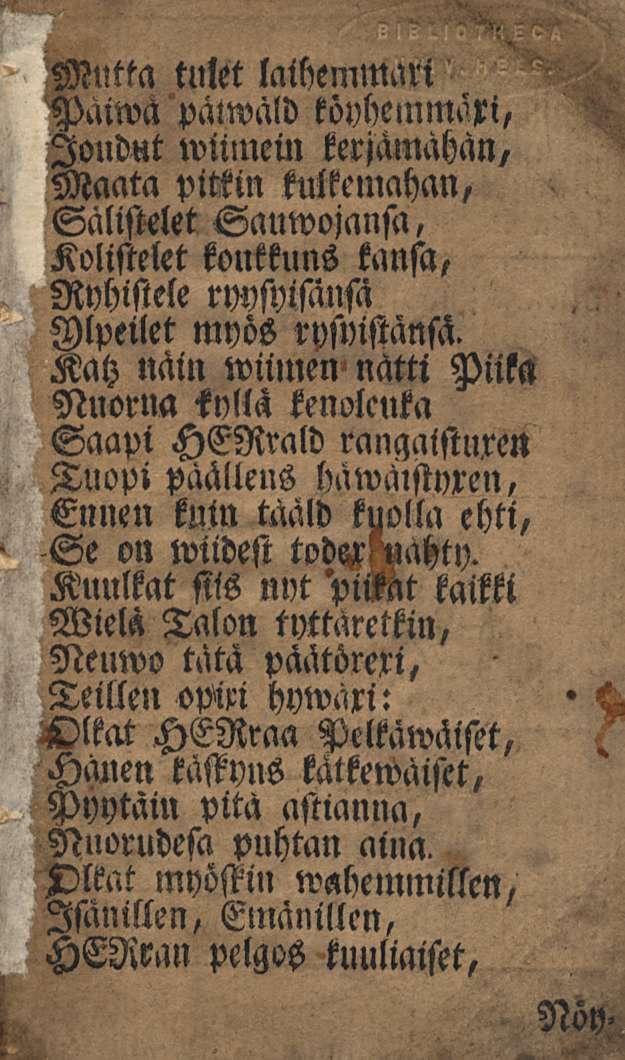 BIBLIOTHECA
Mutta tulet laihemmaxi
Päiwä päiwäld köyhemmäxi,
Joudut wiimein kerjämähän,
Maata pitkin kulkemahan,
Sälistelet Sauwojansa,
Kolistelet koukkuns kansa,
Ryhistele ryysyisänsä
Ylpeilet myös rysyistänsä.
Katz näin wiimen nätti Piika
Nuorna kyllä kenolenka
Saapi HERrald rangaistuxen
Tuopi päällens häwäistyxen,
Ennen kuin tääld kuolla ehti,
Se on wiidest todex nähty.
Kuulkat siis nyt piikat kaikki
Wielä Talon tyttäretkin,
Neuwo tätä päätörexi,
Teillen opixi hywäxi:
Olkat HERraa Pelkäwäiset,
Hänen käskyns kätkewäiset,
Pyytäin pitä astianna,
Nuorudesa puhtan aina.
Olkat myöskin wahemmillen,
Isänillen, Emänillen,
HERran pelgos kuuliaiset,
Nöy-